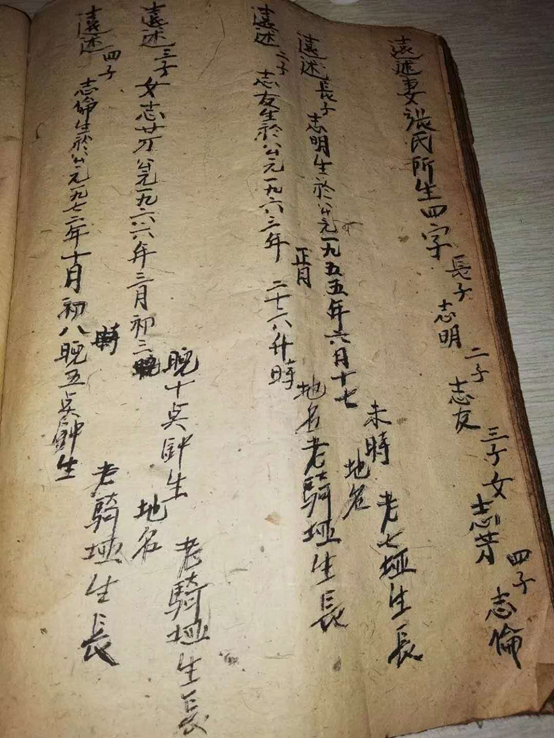 遠述妻張氏所生四字 長子 志明 二子 志友 三子女 志芽 四子 志倫
遠述 長子 志明生於公元一九五五年六月十七 未時 地名 老七埡生長
遠述 二子 志友生於公元一九六三年 正月 二十六升時 地名老騎埡生長
遠述 三子女志芽公元一九六六年三月初三 晚十点鈡生 地名 老騎埡生長
遠述 四子 志倫生於公元一九七二年十月初八晚五点鈡生 時 老騎埡生長